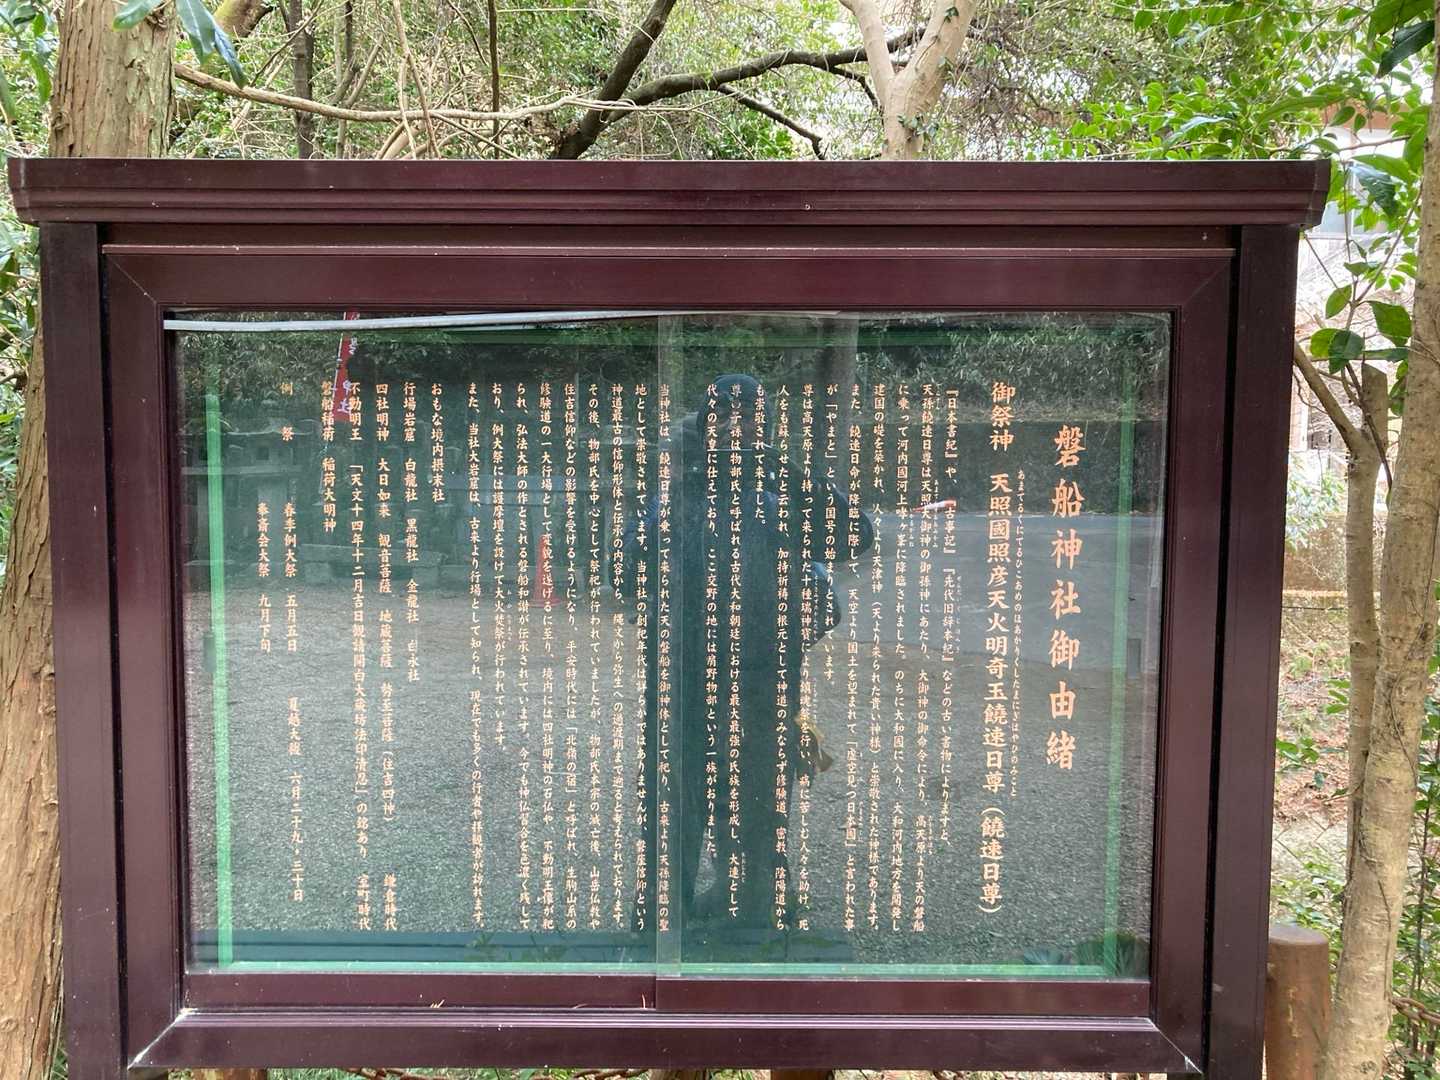 磐船神社御由緒
御祭神　天照國照彦天火明奇玉饒速日尊（饒速日尊）
あまてるくにてるひこあめのほあかりくしたまにぎはやひのみこと
『日本書紀』や、『古事記』『先代旧辞本紀』などの古い書物によりますと、
天孫饒速日尊は天照大御神の御孫神にあたり、大御神の御命令により、高天原より天の磐船
に乗って河内國河上哮ヶ峯に降臨されました。のちに大和国に入り、大和河内地方を開発し
建国の礎を築かれ、人々より天津神（天より来られた貴い神様）と崇敬された神様であります。
また、饒速日命が降臨に際して、天空より国土を望まれて「虚空見つ日本国」と言われた事
が「やまと」という国号の始まりとされています。
尊は高天原より持って来られた十種瑞神寶により鎮魂祭を行い、病に苦しむ人々を助け、死
人をも蘇らせたと云われ、加持祈祷の根元として神道のみならず修験道、密教、陰陽道から
も崇敬されて来ました。
尊の子孫は物部氏と呼ばれる古代大和朝廷における最大最強の氏族を形成し、大連として
代々の天皇に仕えており、ここ交野の地には肩野物部という一族がおりました。
当神社は、饒速日尊が乗って来られた天の磐船を御神体として祀り、古来より天孫降臨の聖
地として崇敬されています。当神社の創祀年代は詳らかではありませんが、磐座信仰という
神道最古の信仰形体と伝承の内容から、縄文から弥生への過渡期まで遡ると考えられております。
その後、物部氏を中心として祭祀が行われていましたが、物部氏本宗の滅亡後、山岳仏教や
住吉信仰などの影響を受けるようになり、平安時代には「北嶺の宿」と呼ばれ、生駒山系の
修験道の一大行場として変貌を遂げるに至り、境内には四社明神の石仏や、不動明王像が祀
られ、弘法大師の作とされる磐船和讃が伝承されています。今でも神仏習合を色濃く残して
おり、例大祭には護摩壇を設けて大火焚祭が行われています。
また、当社大岩窟は、古来より行場として知られ、現在でも多くの行者や拝観者が訪れます。
おもな境内摂末社
行場岩窟　白龍社　黒龍社　金龍社　白永社
四社明神　大日如来　観音菩薩　地蔵菩薩　勢至菩薩（住吉四神）　鎌倉時代
不動明王　「天文十四年十二月吉日観請開白大蔵坊法印清忍」の銘あり　室町時代
磐船稲荷　稲荷大明神
例　祭　春季例大祭　五月五日　夏越大祓　六月二十九・三十日
秦斎会大祭　九月下旬